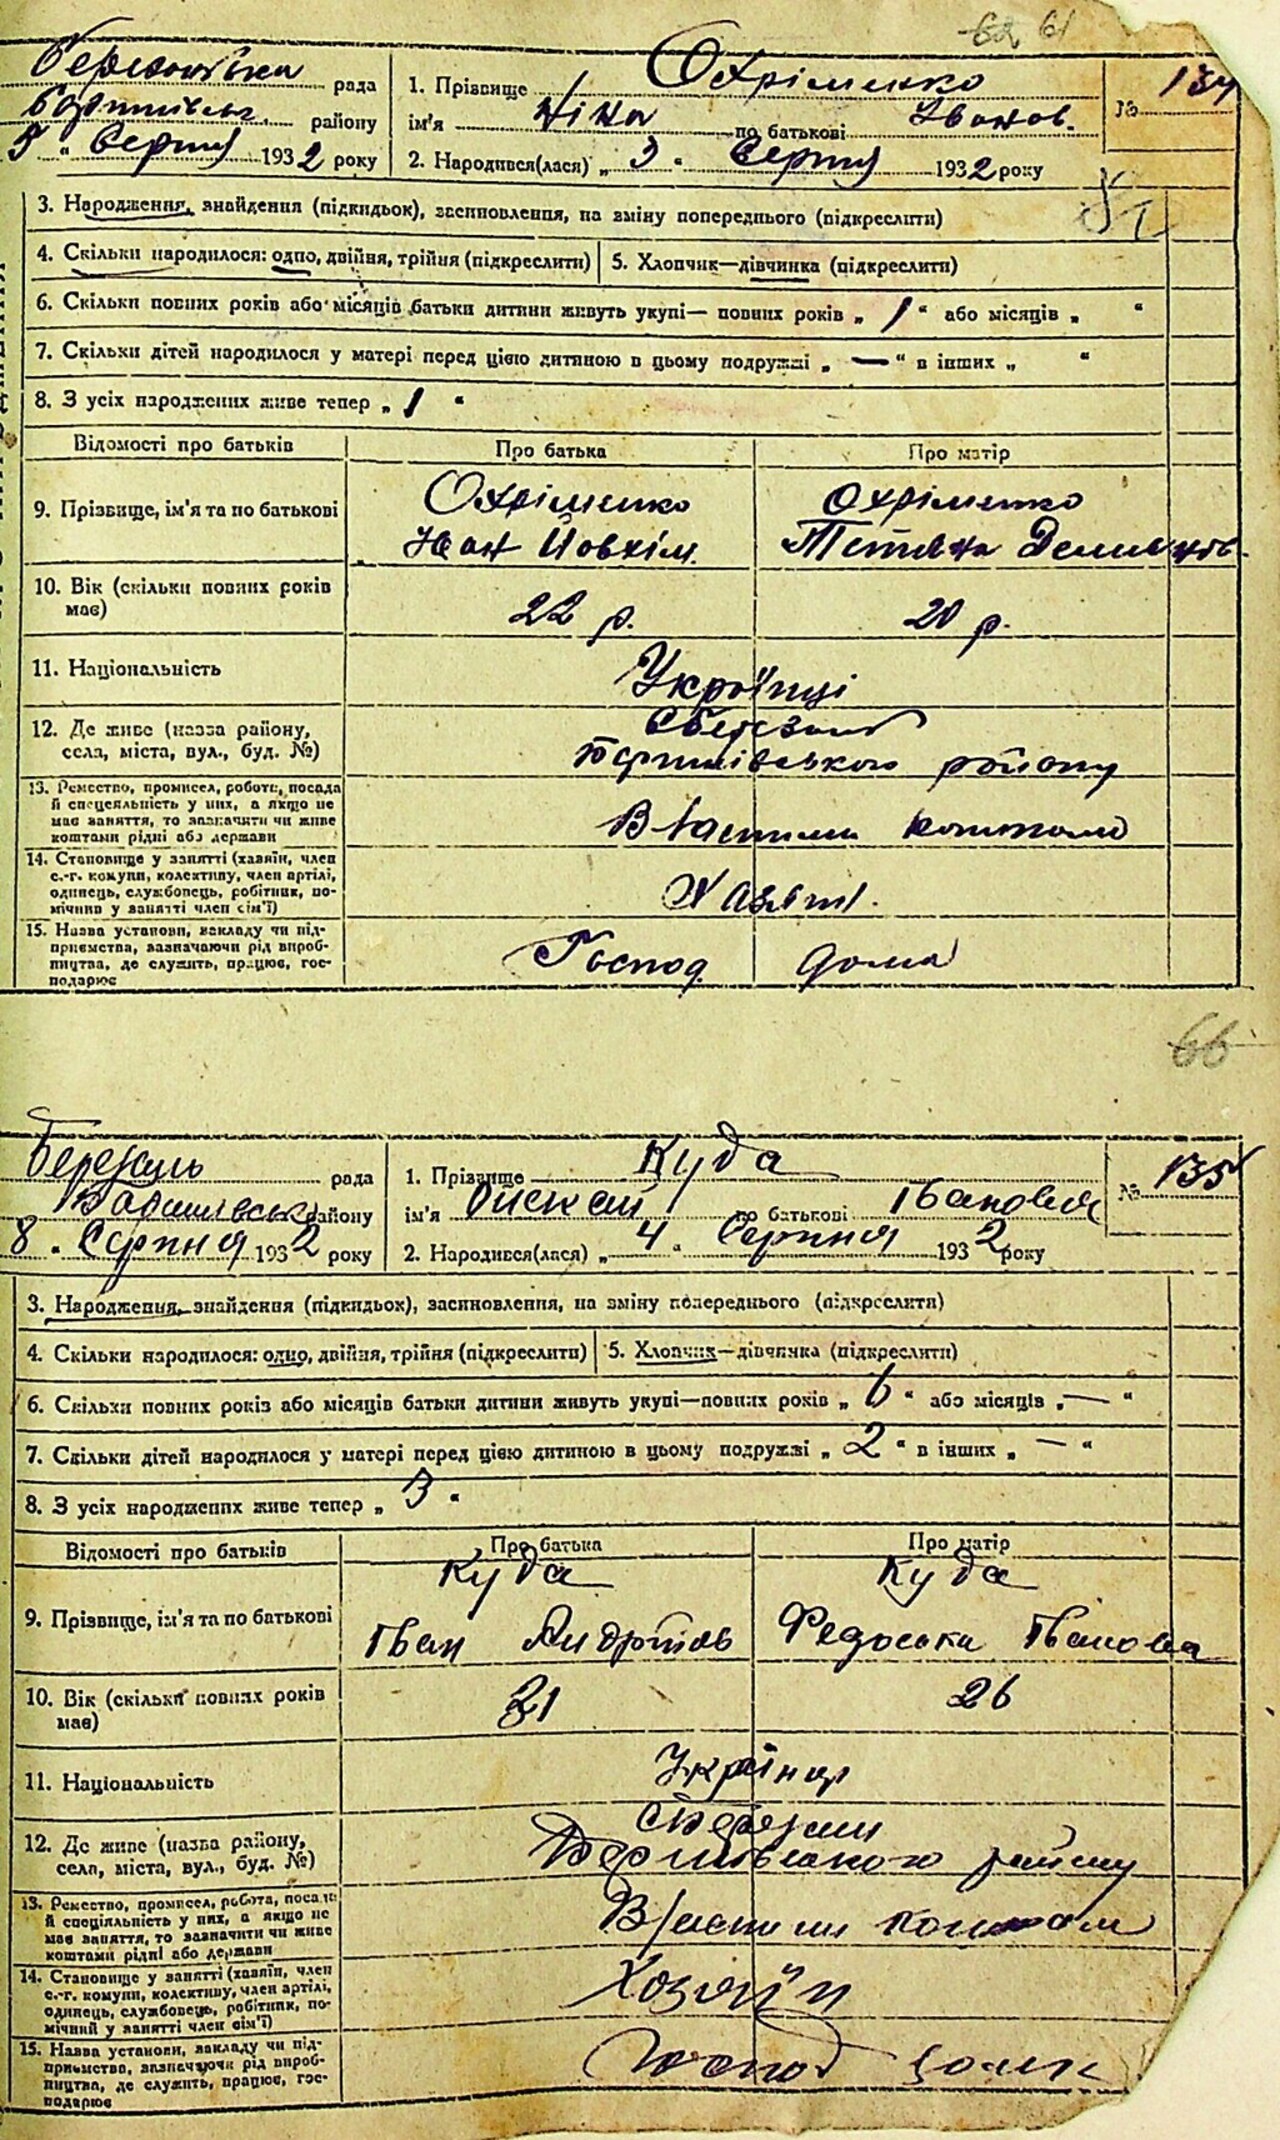 62 61
рада
1. Прізвище Охріменко
№ 134
району
ім'я Ніна по батькові Іванов.
5 „ Серпня 1932 року
2. Народився(лася) „ 3 „ Серпня 1932 року
3. Народження, знайдення (підкидьок), засиновлення, на зміну попереднього (підкреслити)
4. Скільки народилося: одно, двійня, трійня (підкреслити)
5. Хлопчик—дівчинка (підкреслити)
6. Скільки повних років або місяців батьки дитини живуть укупі— повних років „ 1 “ або місяців „ “
7. Скільки дітей народилося у матері перед цією дитиною в цьому подружжі „ — “ в інших „ “
8. З усіх народжених живе тепер „ 1 “
Відомості про батьків
Про батька
Про матір
9. Прізвище, ім'я та по батькові
Охріменко
Іван Йовхім.
Охріменко
Тетяна
10. Вік (скільки повних років
має)
22 р.
20 р.
11. Національність
Українці
12. Де живе (назва району,
села, міста, вул., буд. №)
району
13. Ремество, промисел, робота, посада
й спеціяльність у них, а якщо не
має заняття, то зазначити чи живе
коштами рідні або держави
Власними коштами
14. Становище у занятті (хазяїн, член
с.-г. комуни, колективу, член артілі,
одинець, службовець, робітник, по-
мічник у занятті член сім'ї)
15. Назва установи, закладу чи під-
приємства, зазначаючи рід вироб-
ництва, де служить, працює, гос-
подарює
Господ. дома
66
рада
1. Прізвище Куда
№ 135
району
ім'я по батькові Іванович
8 „ Серпня 1932 року
2. Народився(лася) „ 4 „ Серпня 1932 року
3. Народження, знайдення (підкидьок), засиновлення, на зміну попереднього (підкреслити)
4. Скільки народилося: одно, двійня, трійня (підкреслити)
5. Хлопчик—дівчинка (підкреслити)
6. Скільки повних років або місяців батьки дитини живуть укупі—повних років „ 6 “ або місяців „ — “
7. Скільки дітей народилося у матері перед цією дитиною в цьому подружжі „ 2 “ в інших „ — “
8. З усіх народжених живе тепер „ 3 “
Відомості про батьків
Про батька
Про матір
9. Прізвище, ім'я та по батькові
Куда
Іван
Куда
Федоська Іванова
10. Вік (скільки повних років
має)
31
26
11. Національність
12. Де живе (назва району,
села, міста, вул., буд. №)
району
13. Ремество, промисел, робота, посада
й спеціяльність у них, а якщо не
має заняття, то зазначити чи живе
коштами рідні або держави
Власними
14. Становище у занятті (хазяїн, член
с.-г. комуни, колективу, член артілі,
одинець, службовець, робітник, по-
мічний у занятті член сім'ї)
Хозяїн
15. Назва установи, закладу чи під-
приємства, зазначаючи рід вироб-
ництва, де служить, працює, гос-
подарює
Господ